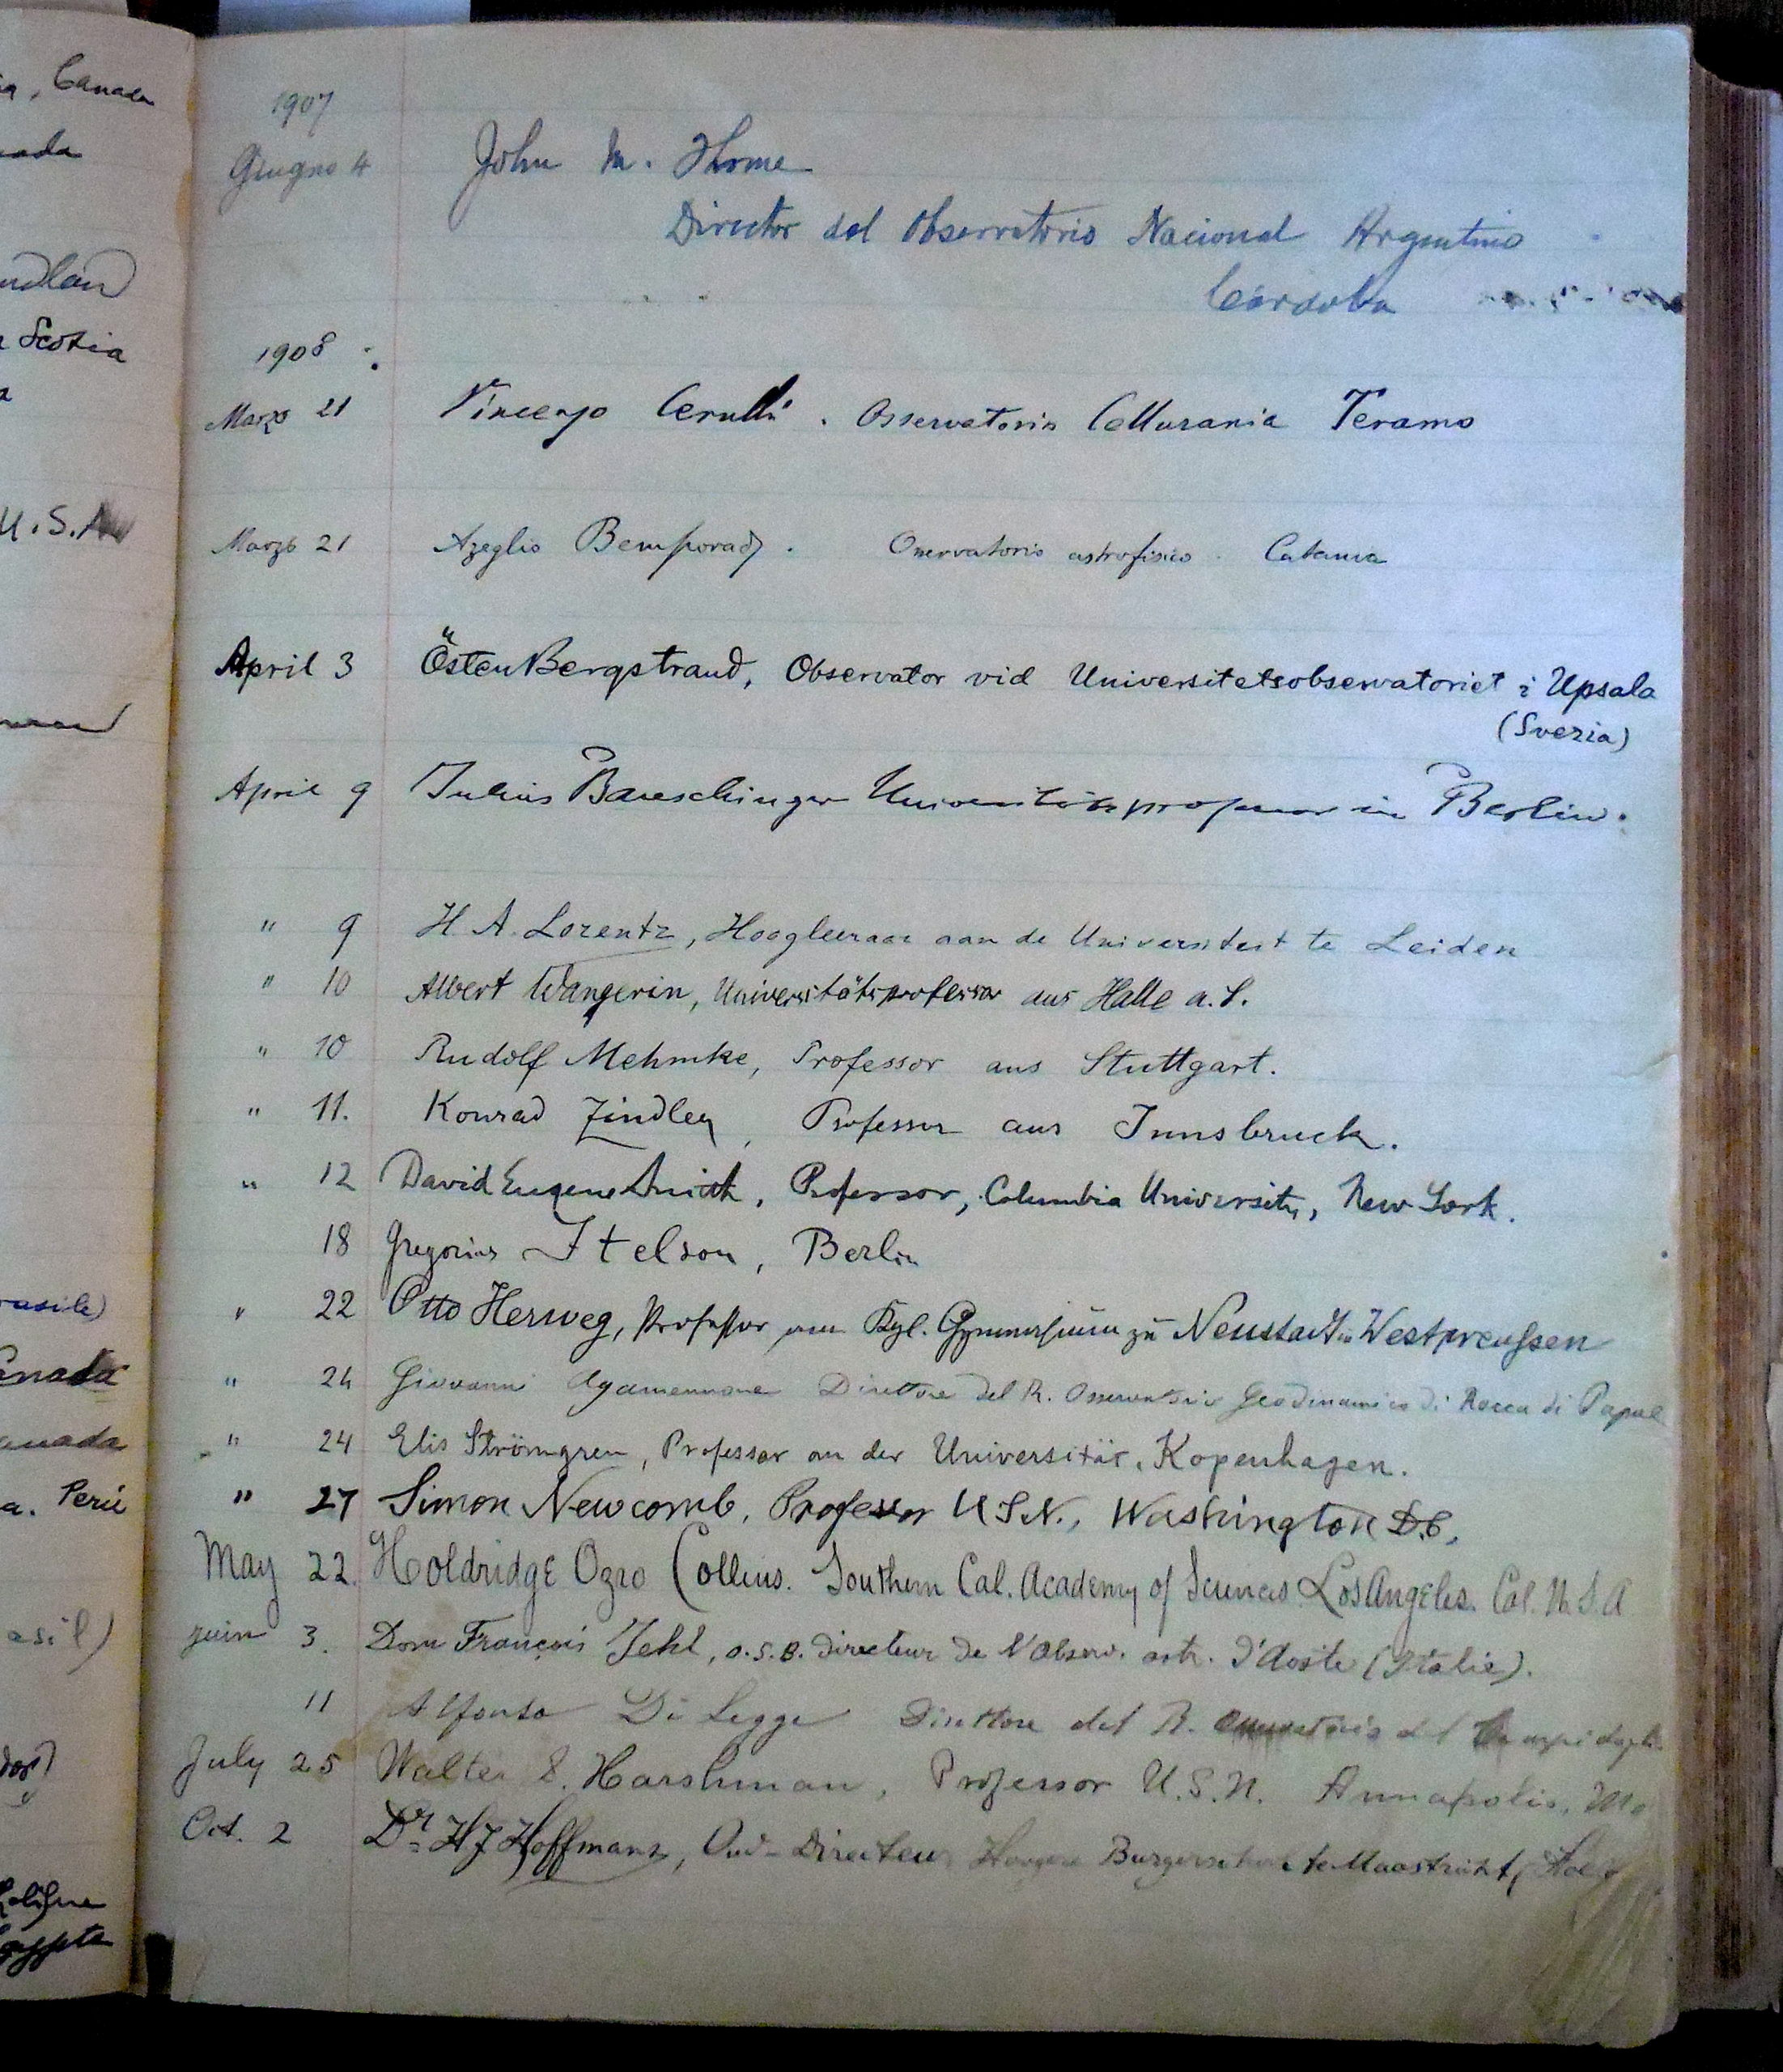 , Canada
1907
Giugno 4 John M. Thome
Director del Observatorio Nacional Argentino
Córdoba
Scotia
1908
Marzo 21 Vincenzo Cerulli. Osservatorio Collurania Teramo
U.S.A
Marzo 21 Azeglio Bemporad. Osservatorio astrofisico. Catania
April 3 Östen Bergstrand, Observator vid Universitetsobservatoriet i Upsala
(Svezia)
April 9 Julius Bauschinger Universitätsprofessor in Berlin.
" 9 H. A. Lorentz, Hoogleeraar aan de Universiteit te Leiden
" 10 Albert Wangerin, Universitätsprofessor aus Halle a. S.
" 10 Rudolf Mehmke, Professor aus Stuttgart.
" 11. Konrad Zindler, Professor aus Innsbruck.
" 12 David Eugene Smith, Professor, Columbia University, New York.
18 Gregorius Itelson, Berlin
" 22 Otto Herweg, Professor am Kgl. Gymnasium zu Neustadt in Westpreußen
" 24 Giovanni Agamennone Direttore del R. Osservatorio Geodinamico di Rocca di Papa
" 24 Elis Strömgren, Professor an der Universität, Kopenhagen.
" 27 Simon Newcomb, Professor U.S.N., Washington D.C.
May 22. Holdridge Ozro Collins. Southern Cal. Academy of Sciences Los Angeles. Cal. U.S.A
juin 3. Dom François Jehl, o.s.B. directeur de l'Observ. astr. d'Aoste (Italie).
11 Alfonso Di Legge Direttore del R. Osservatorio del Campidoglio
July 25 Walter S. Harshman, Professor U.S.N. Annapolis, Md
Oct. 2 Dr H J Hoffmans, Oud-Directeur Hoogere Burgerschool te Maastricht,